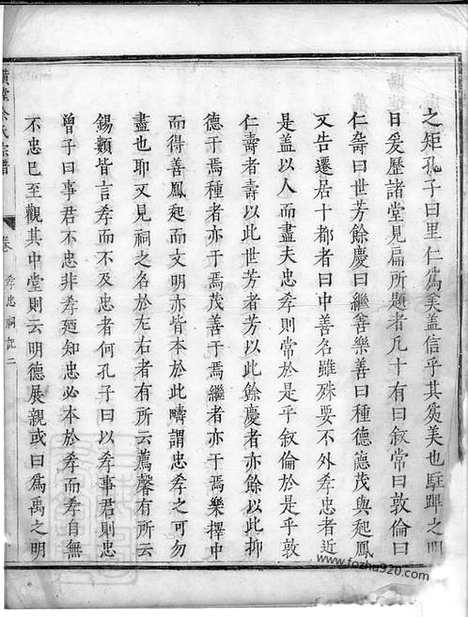 之矩孔子曰里仁爲美蓋信乎其爲美也駐蹕之明
日爰歷諸堂見扁所題者凡十有曰敘常曰敦倫曰
仁壽曰世芳餘慶曰繼善樂善曰種德德茂與起鳳
文告遷居十都者曰中善名雖殊要不外孝忠者近
是盖以人而盡夫忠孝則常於是乎敘倫於是乎敦
仁壽者壽以此世芳者芳以此餘慶者亦餘以此抑
德于焉種茂善于焉繼者亦于焉樂擇中
而得善鳳起而文明亦皆本於此疇謂忠孝之可勿
盡也耶又見祠之名於左右者有所云薦馨有所云
錫類皆言孝而不及忠者何孔子曰以孝事君則忠
曾子曰事君不忠非孝廼知忠必本於孝而孝自無
不忠已至觀其中堂則云明德展親或曰爲禹之明
橫堂余氏宗譜
卷
孝忠祠記二
www.fozhu920.com